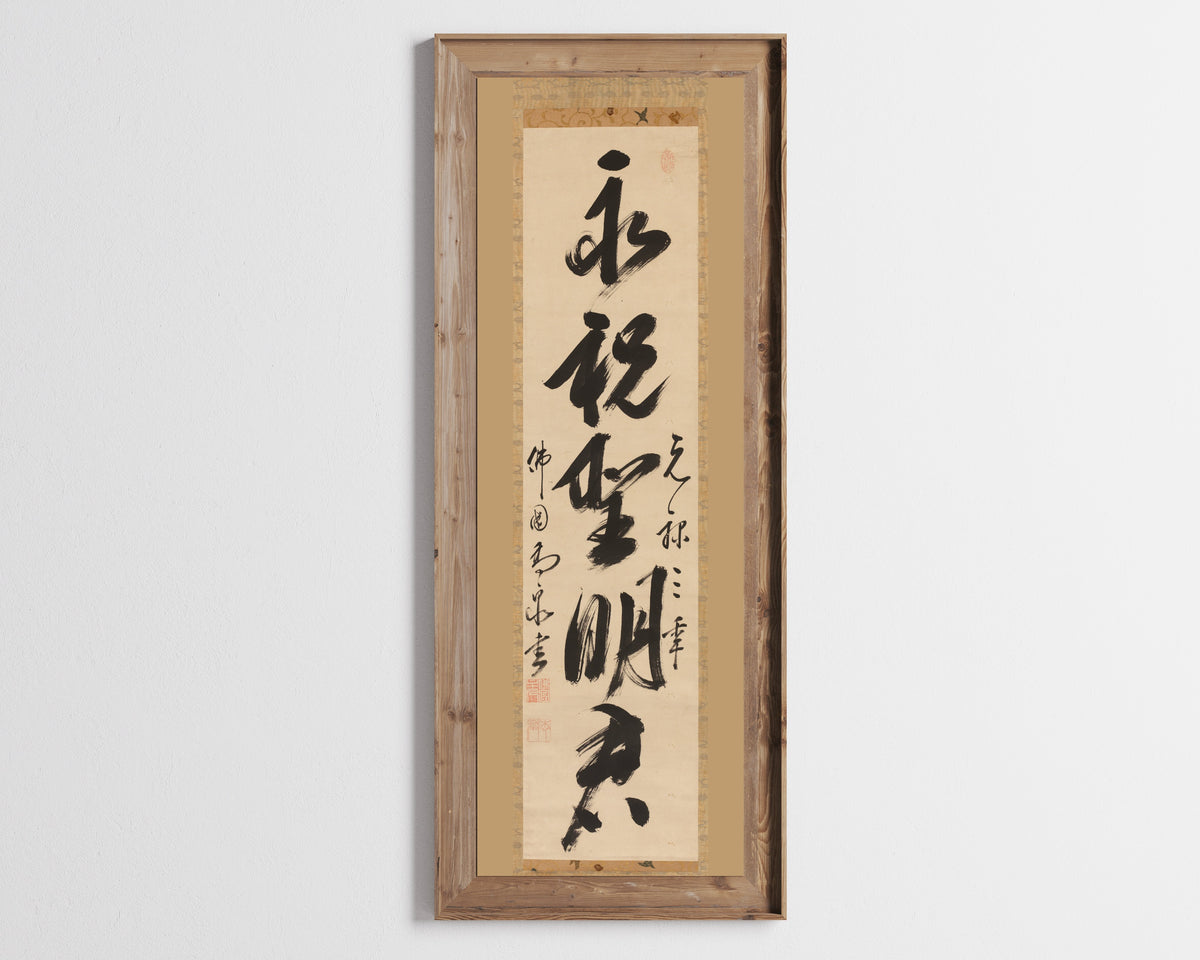 元禄三年
永祝聖明君
佛國高泉書